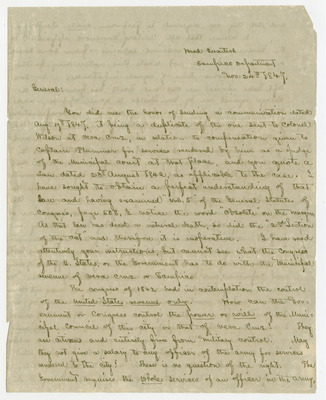 Head Quarters
Tampico Department
Nov. 24th 1847.
General:
You did me the honor of sending a communication dated
Aug 17th 1847, it being a duplicate of the one sent to Colonel
Wilson at Vera Cruz, in relation to compensation given to
Captain Plummer for services rendered by him as a judge
of the Municipal court at that place, and you quote a
law dated 23d August 1842, as applicable to the case. I
have sought to obtain a perfect understanding of that
law and having examined Vol. 5 of the General Statutes of
Congress, page 508, I notice the word obsolete on the margin
As that law has died a natural death, so did the "2d Section
of the Act" and therefore it is inoperative. I have read
attentively your instructions, but cannot see what the Congress
of the U. States, or the Government has to do with the Municipal
revenue of Vera Cruz or Tampico
The congress of 1842 had in contemplation the control
of the United States revenue only. How can the Gov-
ernment or Congress control the power or will of the Muni-
cipal Council of this city or that of Vera Cruz? They
are citizens and entirely free from "military control. May
they not give a salary to any officer of the army for services
rendered to the city? There is no question of the right. The
Government requires the whole services of an officer in the army,